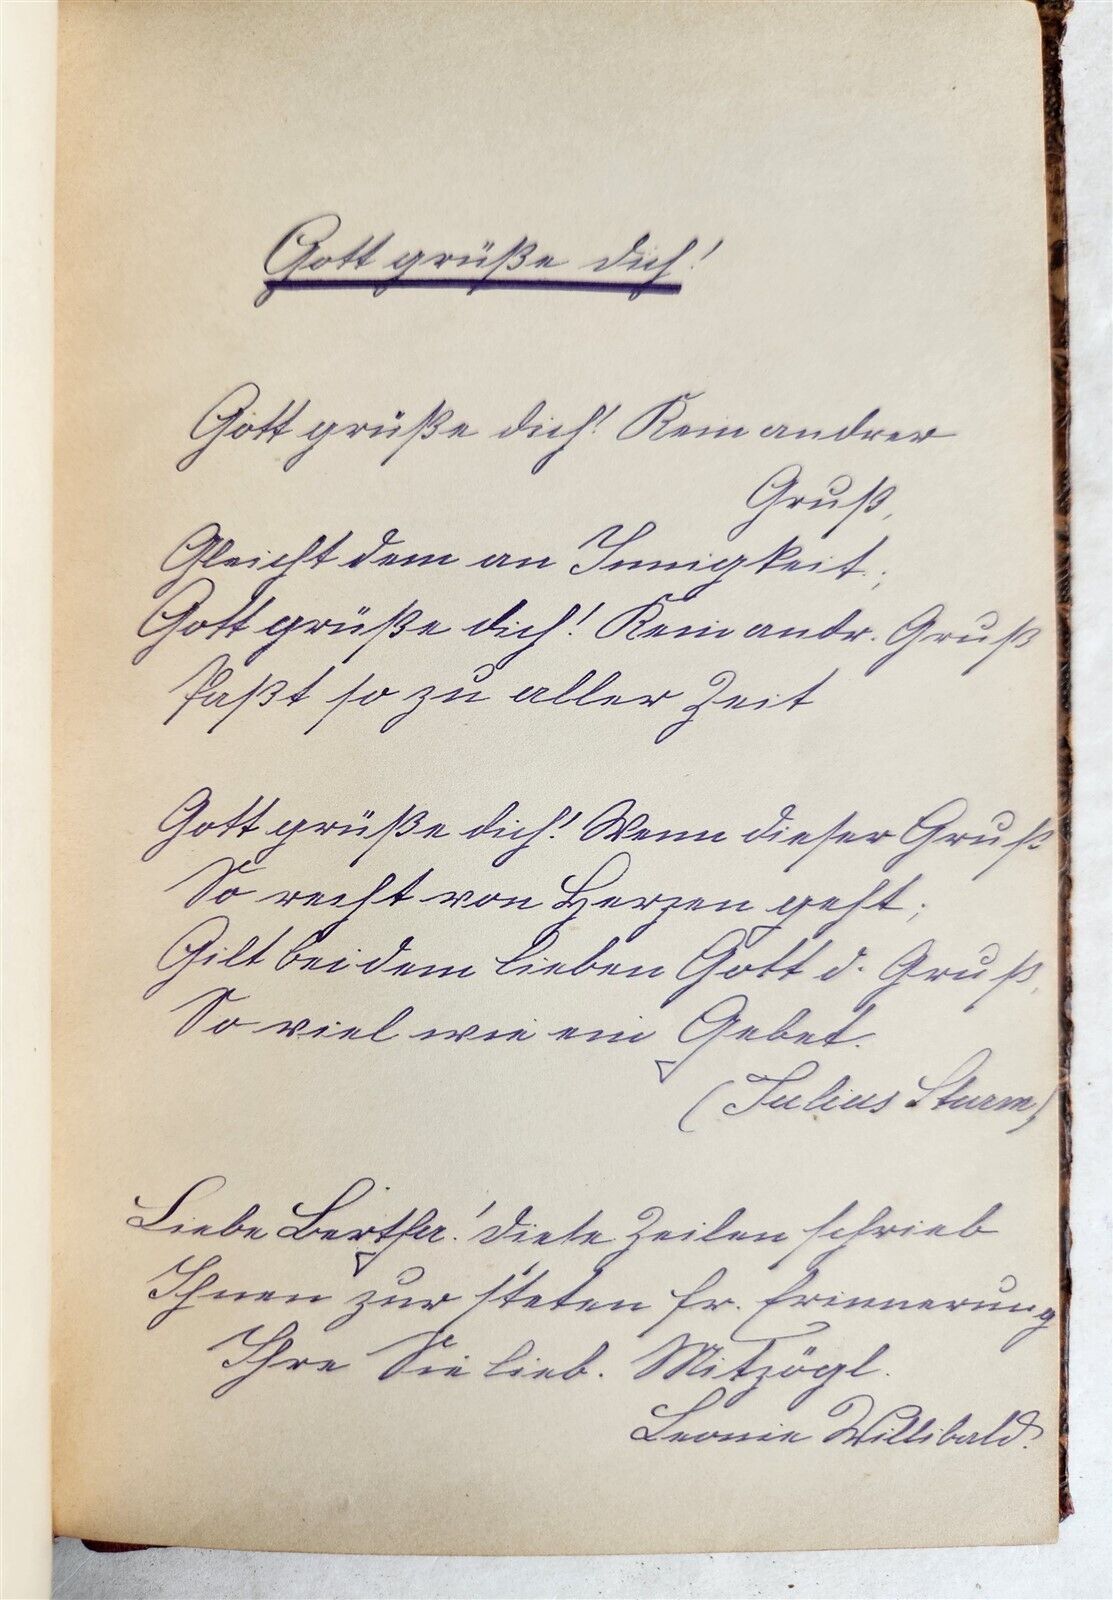 Gott grüße dich!
Gott grüße dich! Kein andrer
Gruß,
Gleicht dem an Innigkeit.;
Gott grüße dich! Kein andr. Gruß
Paßt so zu aller Zeit
Gott grüße dich! Wenn dieser Gruß
So recht von Herzen geht;
Gilt bei dem lieben Gott d. Gruß,
So viel wie ein Gebet.
(Julius Sturm)
Liebe Bertha! Diese Zeilen schrieb
Ihnen zur steten fr. Erinnerung
Ihre Sie lieb. Mitzögl.
Leonie Willibald.